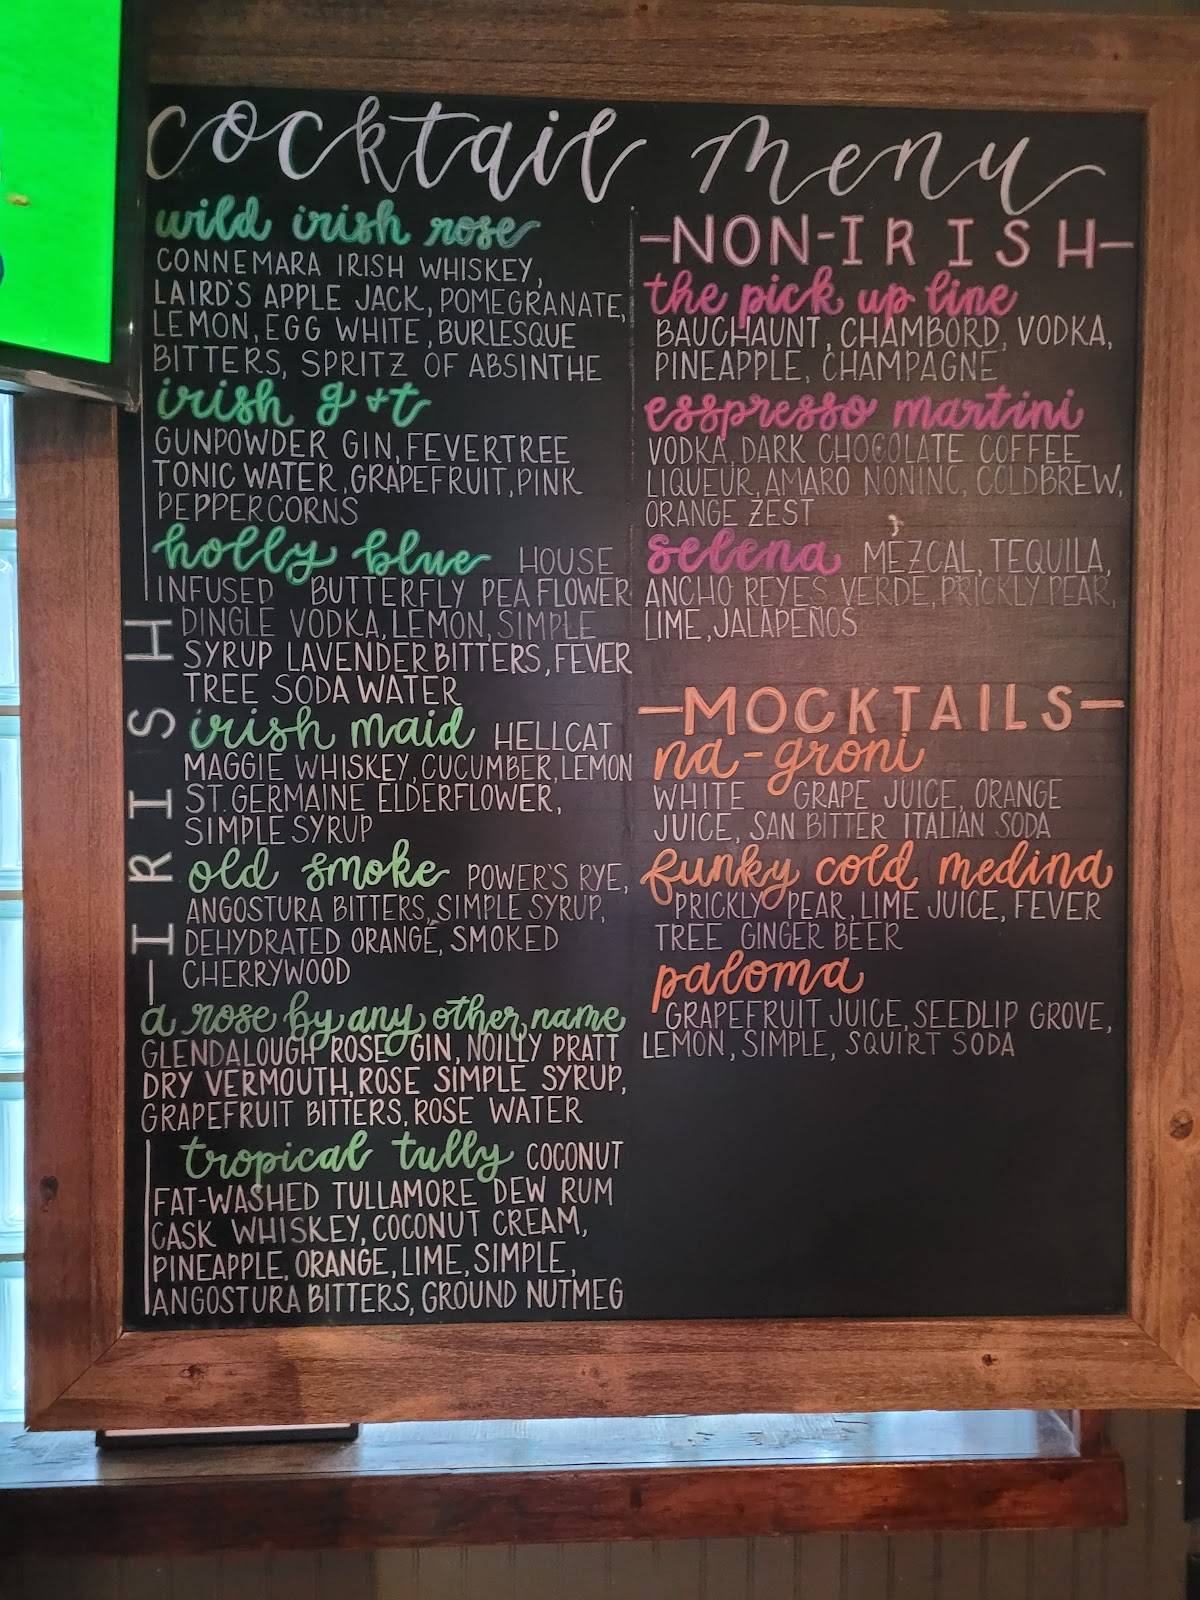 cocktail menu
wild irish rose
CONNEMARA IRISH WHISKEY,
LAIRD'S APPLE JACK, POMEGRANATE,
LEMON, EGG WHITE, BURLESQUE
BITTERS, SPRITZ OF ABSINTHE
irish g+t
GUNPOWDER GIN, FEVERTREE
TONIC WATER, GRAPEFRUIT, PINK
PEPPERCORNS
holly blue HOUSE
INFUSED BUTTERFLY PEA FLOWER
DINGLE VODKA, LEMON, SIMPLE
SYRUP LAVENDER BITTERS, FEVER
TREE SODA WATER
irish maid HELLCAT
MAGGIE WHISKEY, CUCUMBER, LEMON
ST. GERMAINE ELDERFLOWER,
SIMPLE SYRUP
old smoke POWER'S RYE,
ANGOSTURA BITTERS, SIMPLE SYRUP,
DEHYDRATED ORANGE, SMOKED
CHERRYWOOD
a rose by any other name
GLENDALOUGH ROSE GIN, NOILLY PRATT
DRY VERMOUTH, ROSE SIMPLE SYRUP,
GRAPEFRUIT BITTERS, ROSE WATER
tropical tully COCONUT
FAT-WASHED TULLAMORE DEW RUM
CASK WHISKEY, COCONUT CREAM,
PINEAPPLE, ORANGE, LIME, SIMPLE,
ANGOSTURA BITTERS, GROUND NUTMEG
-IRISH
-NON-IRISH-
the pick up line
BAUCHAUNT, CHAMBORD, VODKA,
PINEAPPLE, CHAMPAGNE
esspresso martini
VODKA, DARK CHOCOLATE COFFEE
LIQUEUR, AMARO NONINO, COLDBREW,
ORANGE ZEST
selena MEZCAL, TEQUILA,
ANCHO REYES VERDE, PRICKLY PEAR,
LIME, JALAPEÑOS
-MOCKTAILS-
na-groni
WHITE GRAPE JUICE, ORANGE
JUICE, SAN BITTER ITALIAN SODA
funky cold medina
PRICKLY PEAR, LIME JUICE, FEVER
TREE GINGER BEER
paloma
GRAPEFRUIT JUICE, SEEDLIP GROVE,
LEMON, SIMPLE, SQUIRT SODA